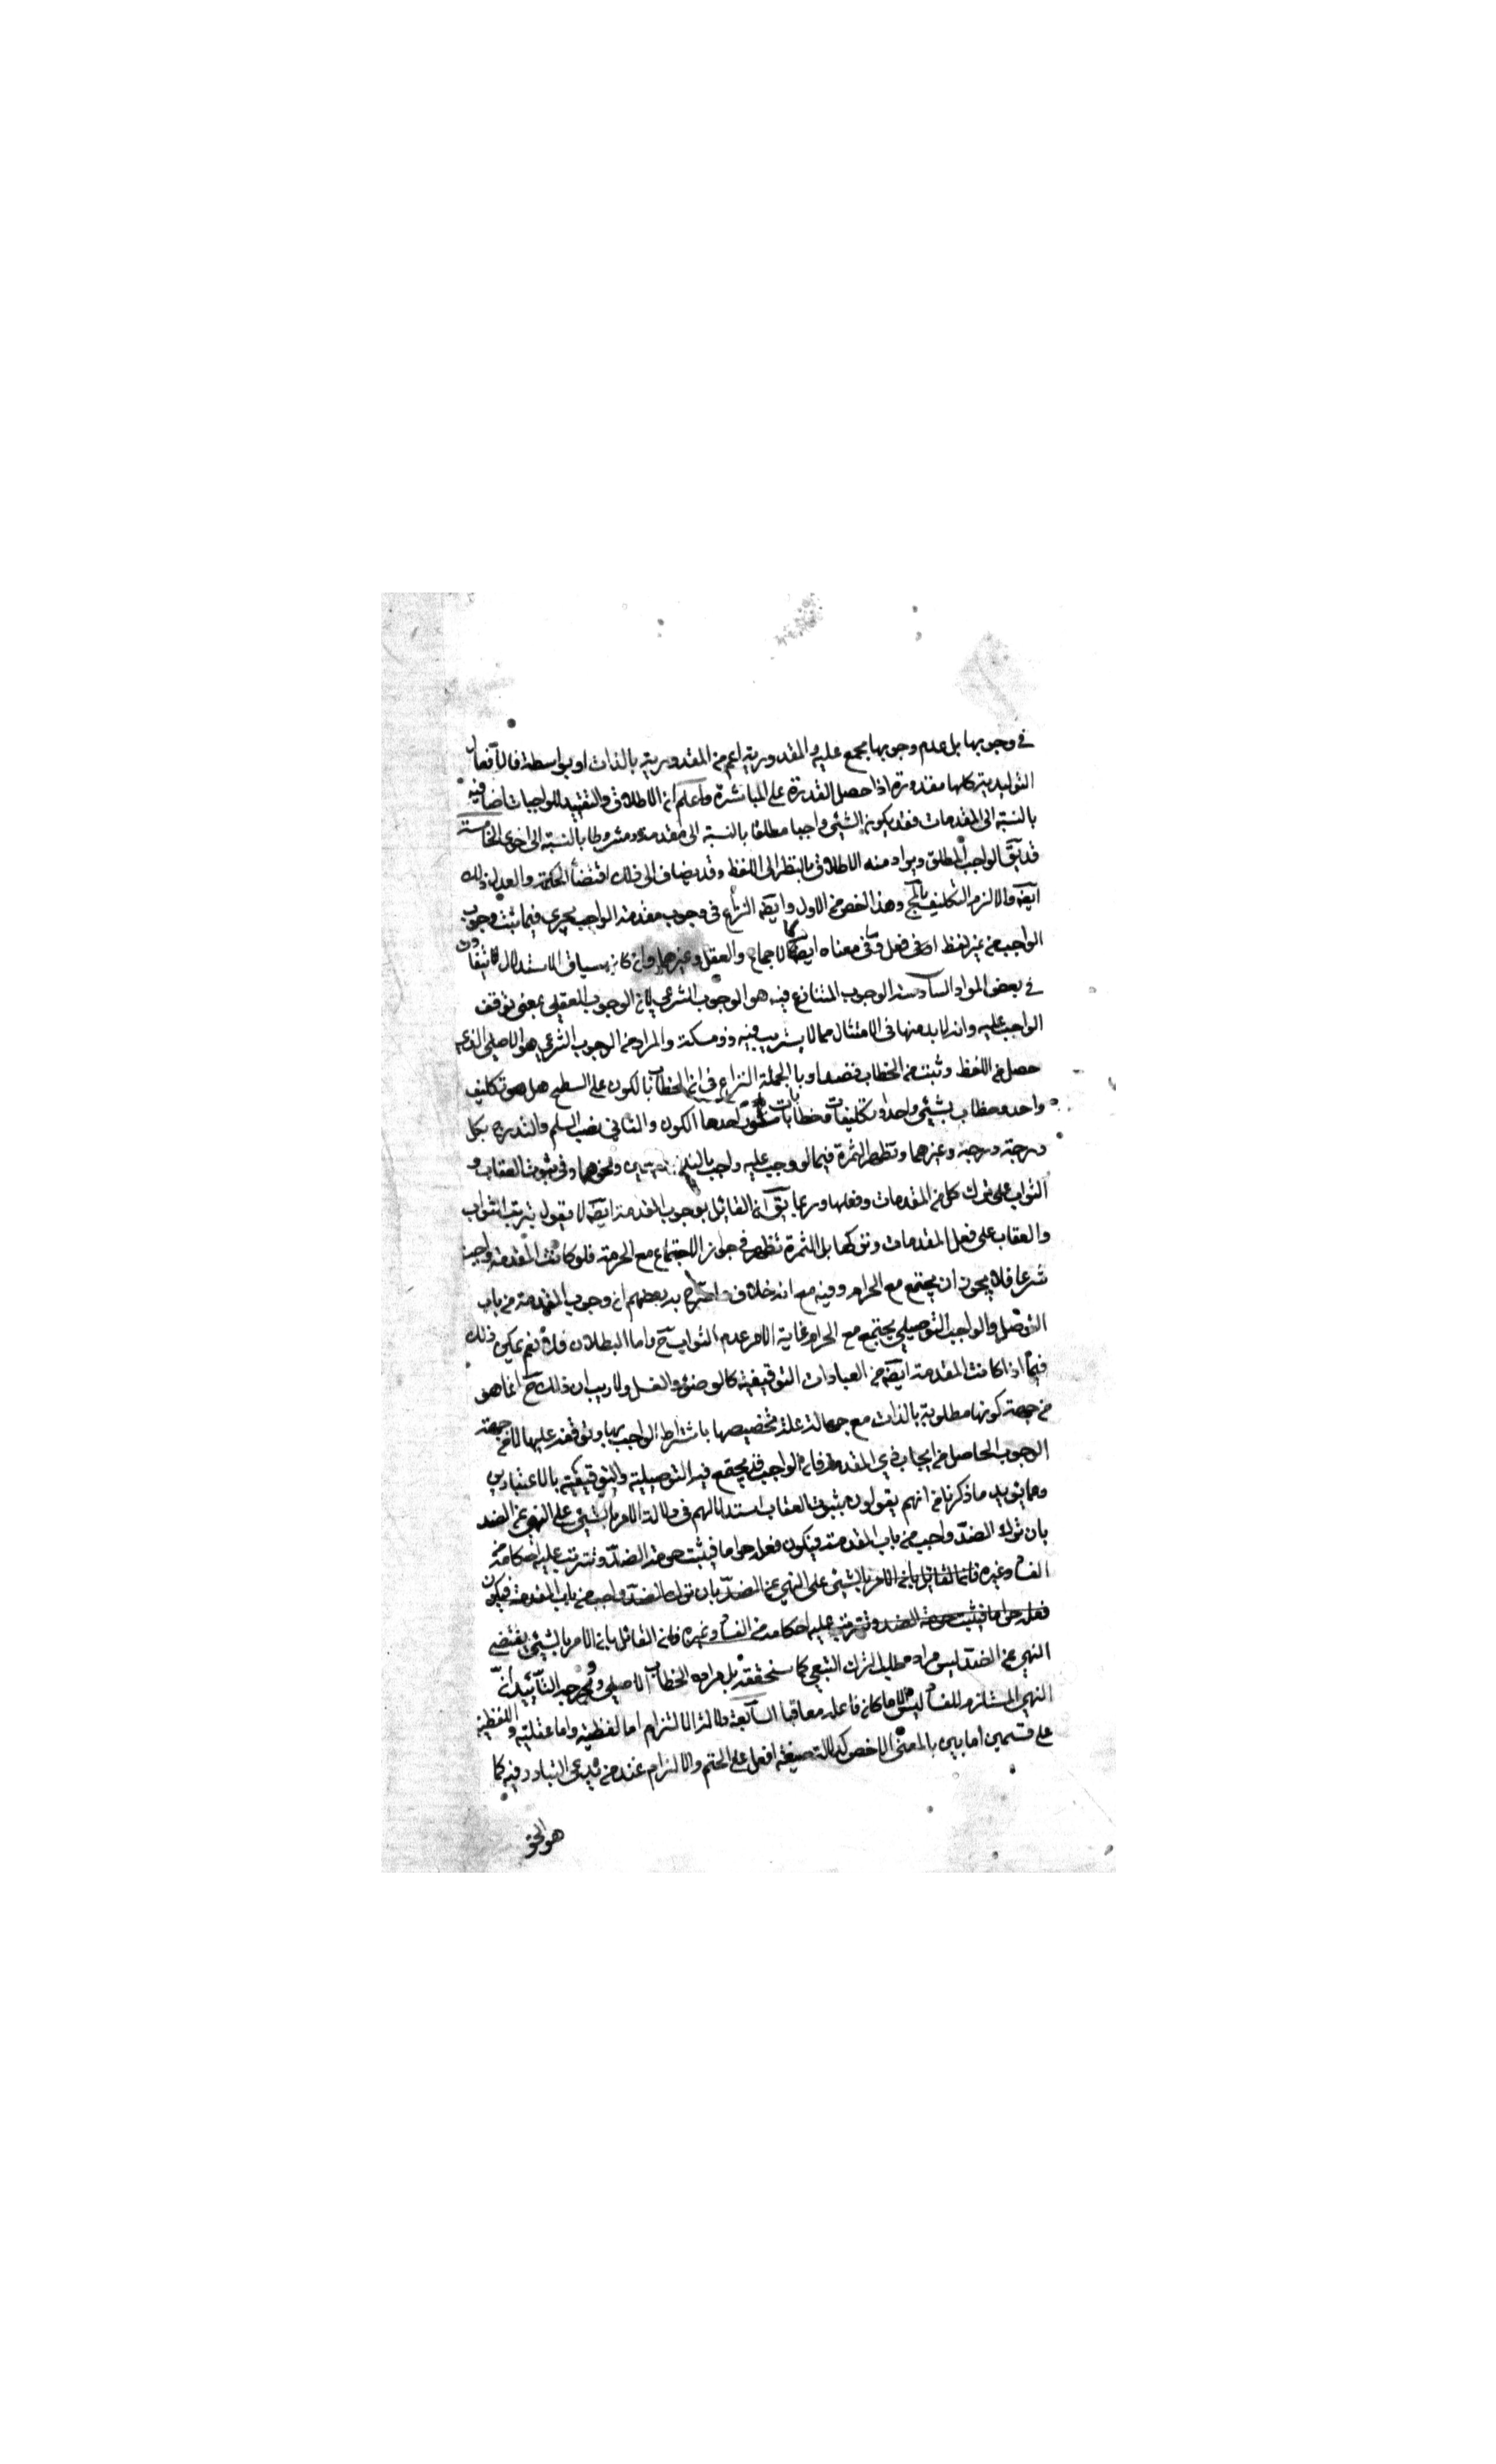 في وجوبها بل عدم وجوبها مجمع عليه والمقدورية اعم من المقدورية بالذات او بواسطة فالافعال
التوليدية كلها مقدورة اذا حصل القدرة على المباشرة واعلم ان الاطلاق والتقييد للواجبات اضافية
بالنسبة الى المقدمات فقد يكون الشيئ واجبا مطلقا بالنسبة الى مقدمة ومشروطا بالنسبة الى اخرى الخامسة
قد يق الواجب المطلق ويراد منه الاطلاق بالنظر الى اللفظ وقد يضاف الى ذلك اقتضأ الحكمة والعدل ذلك
ايضه والا لزم التكليف بالمح وهذا اخص من الاول وايضه النزاع في وجوب مقدمة الواجب يجرى فيما ثبت وجوب
الواجب من غير لفظ افعل وما في معناه ايضا كالاجماع والعقل وغيرهما وان كان سياق الاستدلال قد يتفاوت
في بعض المواد السادسة الوجوب المتنازع فيه هو الوجوب الشرعي لان الوجوب العقلي بمعنى توقف
الواجب عليه وانه لابد منها في الامتثال مما لا يستريب فيه ذو مسكة والمراد من الوجوب الشرعي هو الاصلى الذي
حصل من اللفظ وثبت من الخطاب قصدا وبالجملة النزاع في ان الخطاب بالكون على السطح هل هو تكليف
واحد وخطاب بشيئ واحد او تكليفات وخطابات احدها الكون والثاني نصب السلم والتدرج بكل
درجة درجة وغيرهما وتظهر الثمرة فيما لو وجب عليه واجب ونحوهما وفي ثبوت العقاب و
الثواب على ترك كل من المقدمات وفعلها وربما يق ان القائل بوجوب المقدمة ايضه لا يقول بترتب الثواب
والعقاب على فعل المقدمات وتركها بل الثمرة تظهر في جواز الاجتماع مع الحرمة فلو كانت المقدمة واجبة
شرعا فلا يجوز ان يجتمع مع الحرام وفيه مع انه خلاف ما صرح به بعضهم ان وجوب المقدمة من باب
التوصل والواجب التوصيلي يجتمع مع الحرام غاية الامر عدم الثواب ح واما البطلان فلا نعم يمكن ذلك
فيما اذا كانت المقدمة ايضه من العبادات التوقيفية كالوضوء والغسل ولا ريب ان ذلك ح انما هو
من جهة كونها مطلوبة بالذات مع جهالة علة تخصيصها باشتراط الواجب بها وتوقفه عليها لا من جهة
الوجوب الحاصل من ايجاب ذي المقدمة فان الواجب قد يجتمع فيه التوصيلية والتوقيفية بالاعتبارين
ومما يؤيد ما ذكرنا من انهم يقولون بثبوت العقاب استدلالهم في دلالة الامر بالشيئ على النهي عن الضد
بان ترك الضد واجب من باب المقدمة فيكون فعله حراما فيثبت حرمة الضد وتترتب عليه احكامه من
الفسا وغيره فان القائل بان الامر بالشيئ على النهي عن الضد بان ترك الضد واجب من باب المقدمة فيكون
فعله حراما فيثبت حرمة الضد وتترتب عليه احكامه من الفسا وغيره فان القائل بان الامر بالشيئ يقتضي
النهي عن الضد ليس مراده طلب الترك التبعي كما سنحققه بل مراده الخطاب الاصلي ووجه التأييد ان
النهي المستلزم للفسا ليس الا ما كان فاعله معاقبا السابعة دلالة الالتزام اما لفظية واما عقلية واللفظية
على قسمين اما بين بالمعنى الاخص كدلالة صيغة افعل على الحتم والالزام عند من يدعى التبادر فيه كما
هو الحق